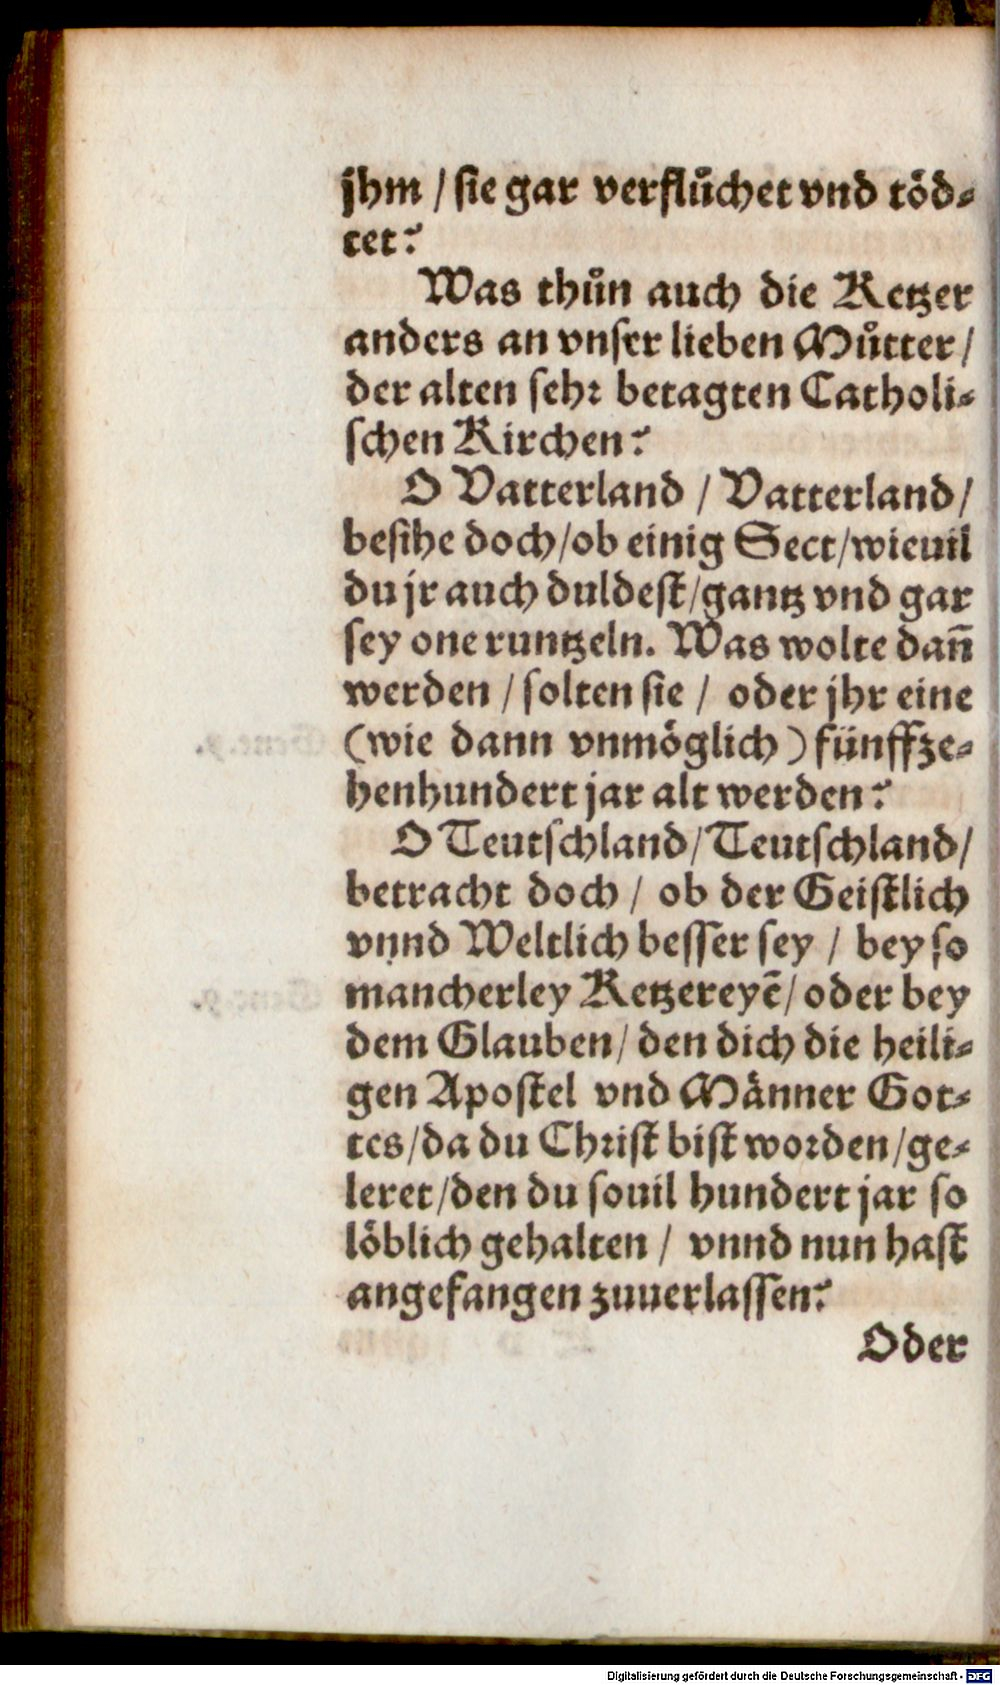 jhm / sie gar verflůchet vnd töd⸗
tet?
Was thůn auch die Ketzer
anders an vnser lieben Můtter /
der alten sehr betagten Catholi⸗
schen Kirchen?
O Vatterland / Vatterland /
besihe doch / ob einig Sect / wieuil
du jr auch duldest / gantz vnd gar
sey one runtzeln. Was wolte dañ
werden / solten sie / oder jhr eine
(wie dann vnmöglich) fünffze⸗
henhundert jar alt werden?
O Teutschland / Teutschland /
betracht doch / ob der Geistlich
vnnd Weltlich besser sey / bey so
mancherley Ketzereyẽ / oder bey
dem Glauben / den dich die heili⸗
gen Apostel vnd Männer Got⸗
tes / da du Christ bist worden / ge⸗
leret / den du souil hundert jar so
löblich gehalten / vnnd nun hast
angefangen zuuerlassen?
Oder
Digitalisierung gefördert durch die Deutsche Forschungsgemeinschaft - DFG